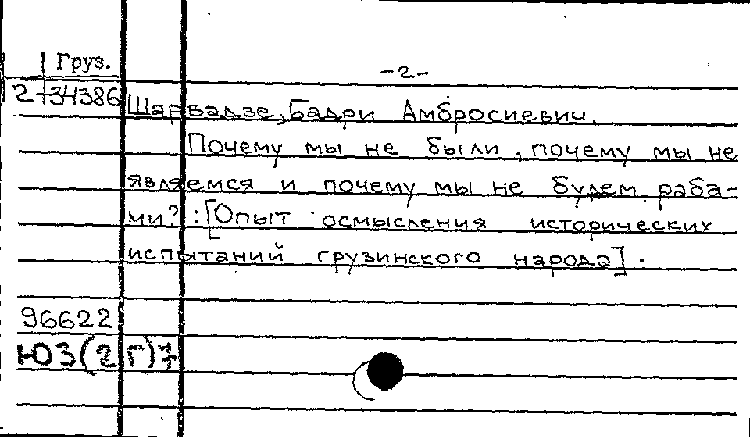 Груз.
-2-
2-34386
Шарвадзе, Бадри Амбросиевич.
Почему мы не были, почему мы не
являемся и почему мы не будем раба-
ми? : [Опыт осмысления исторических
испытаний грузинского народа].
96622
Ю3(2Г)7